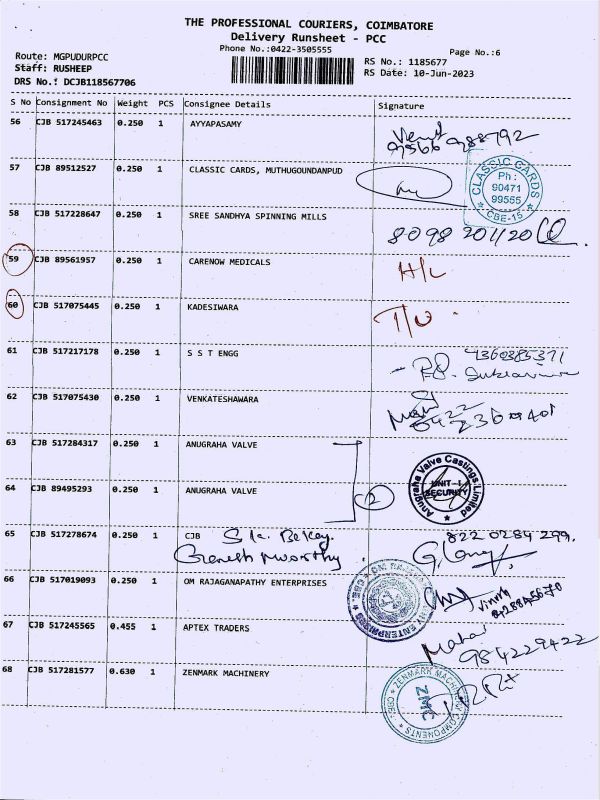 THE PROFESSIONAL COURIERS, COIMBATORE
Delivery Runsheet - PCC
Phone No.:0422-3505555
Page No.:6
Route: MGPUDURPCC
Staff: RUSHEEP
DRS No.: DCJB118567706
RS No.: 1185677
RS Date: 10-Jun-2023
S No Consignment No Weight PCS Consignee Details Signature
56 CJB 517245463 0.250 1 AYYAPASAMY
57 CJB 89512527 0.250 1 CLASSIC CARDS, MUTHUGOUNDANPUD
CLASSIC CARDS
Ph :
90471
99555
CBE-15
58 CJB 517228647 0.250 1 SREE SANDHYA SPINNING MILLS
8098 201120
59 CJB 89561957 0.250 1 CARENOW MEDICALS
H/L
60 CJB 517075445 0.250 1 KADESIWARA
61 CJB 517217178 0.250 1 S S T ENGG
9360385371
62 CJB 517075430 0.250 1 VENKATESHAWARA
0422
63 CJB 517284317 0.250 1 ANUGRAHA VALVE
64 CJB 89495293 0.250 1 ANUGRAHA VALVE
2
Anugraha Valve Castings Limited
UNIT-I
SECURITY
65 CJB 517278674 0.250 1 CJB
Ganesh Moorthy
822 0284 299.
66 CJB 517019093 0.250 1 OM RAJAGANAPATHY ENTERPRISES
67 CJB 517245565 0.455 1 APTEX TRADERS
984229422
68 CJB 517281577 0.630 1 ZENMARK MACHINERY
ZENMARK MACHINERY COMPONENTS
ZMC